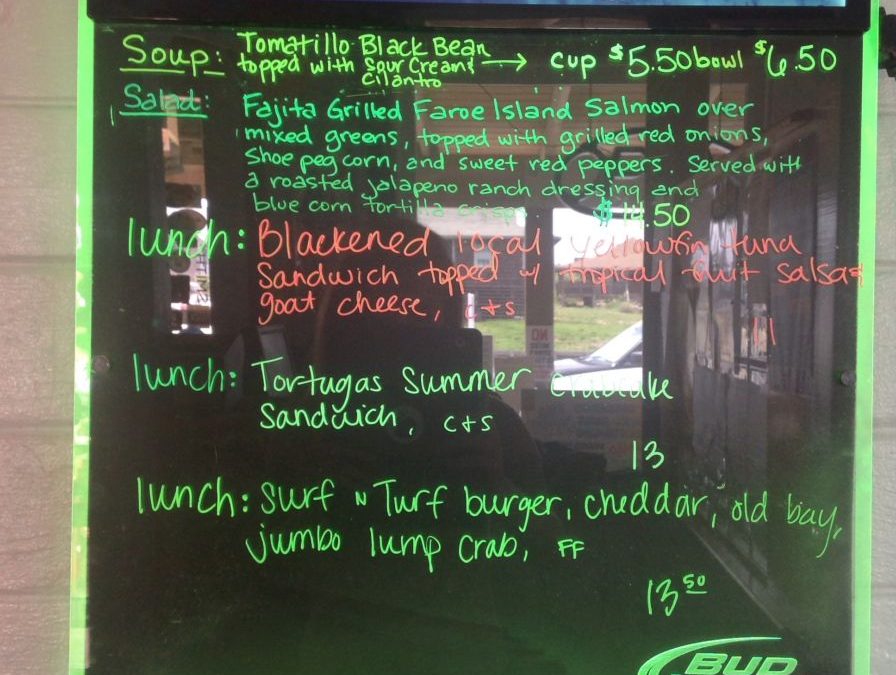 Soup: Tomatillo Black Bean
topped with Sour Cream &
cilantro → cup $5.50 bowl $6.50
Salad: Fajita Grilled Faroe Island Salmon over
mixed greens, topped with grilled red onions,
Shoe peg corn, and sweet red peppers. Served with
a roasted jalapeno ranch dressing and
blue corn tortilla crisps. $14.50
lunch: Blackened local yellowfin tuna
Sandwich topped w/ tropical fruit salsa &
goat cheese, c+s
11
lunch: Tortugas Summer crabcake
Sandwich, c+s
13
lunch: Surf N Turf burger, cheddar, old bay,
jumbo lump crab, FF
13 50
BUD